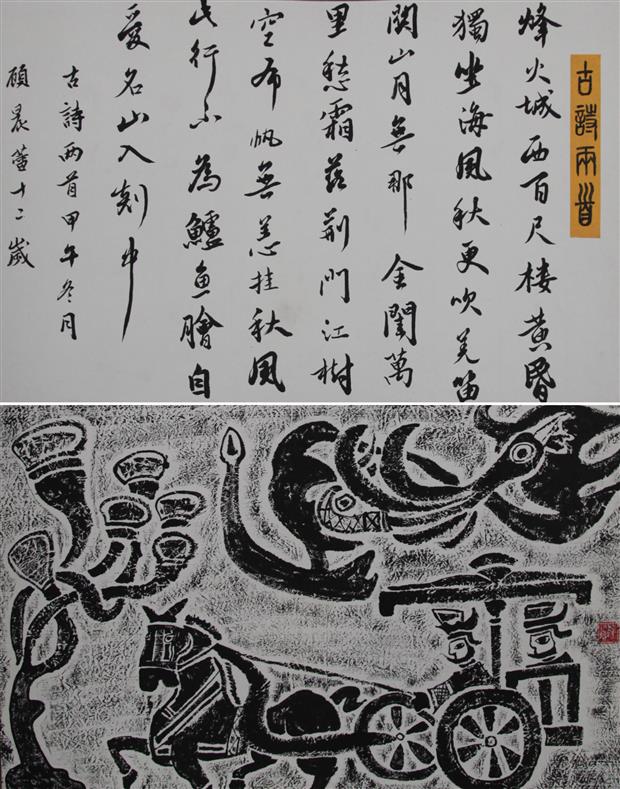 古詩兩首
烽火城西百尺楼黄昏
獨坐海風秋更吹羌笛
関山月無那金閨萬
里愁霜落荆門江樹
空布帆無恙挂秋風
此行不為鱸魚膾自
愛名山入剡中
古詩兩首甲午冬月
顧晨十二歲